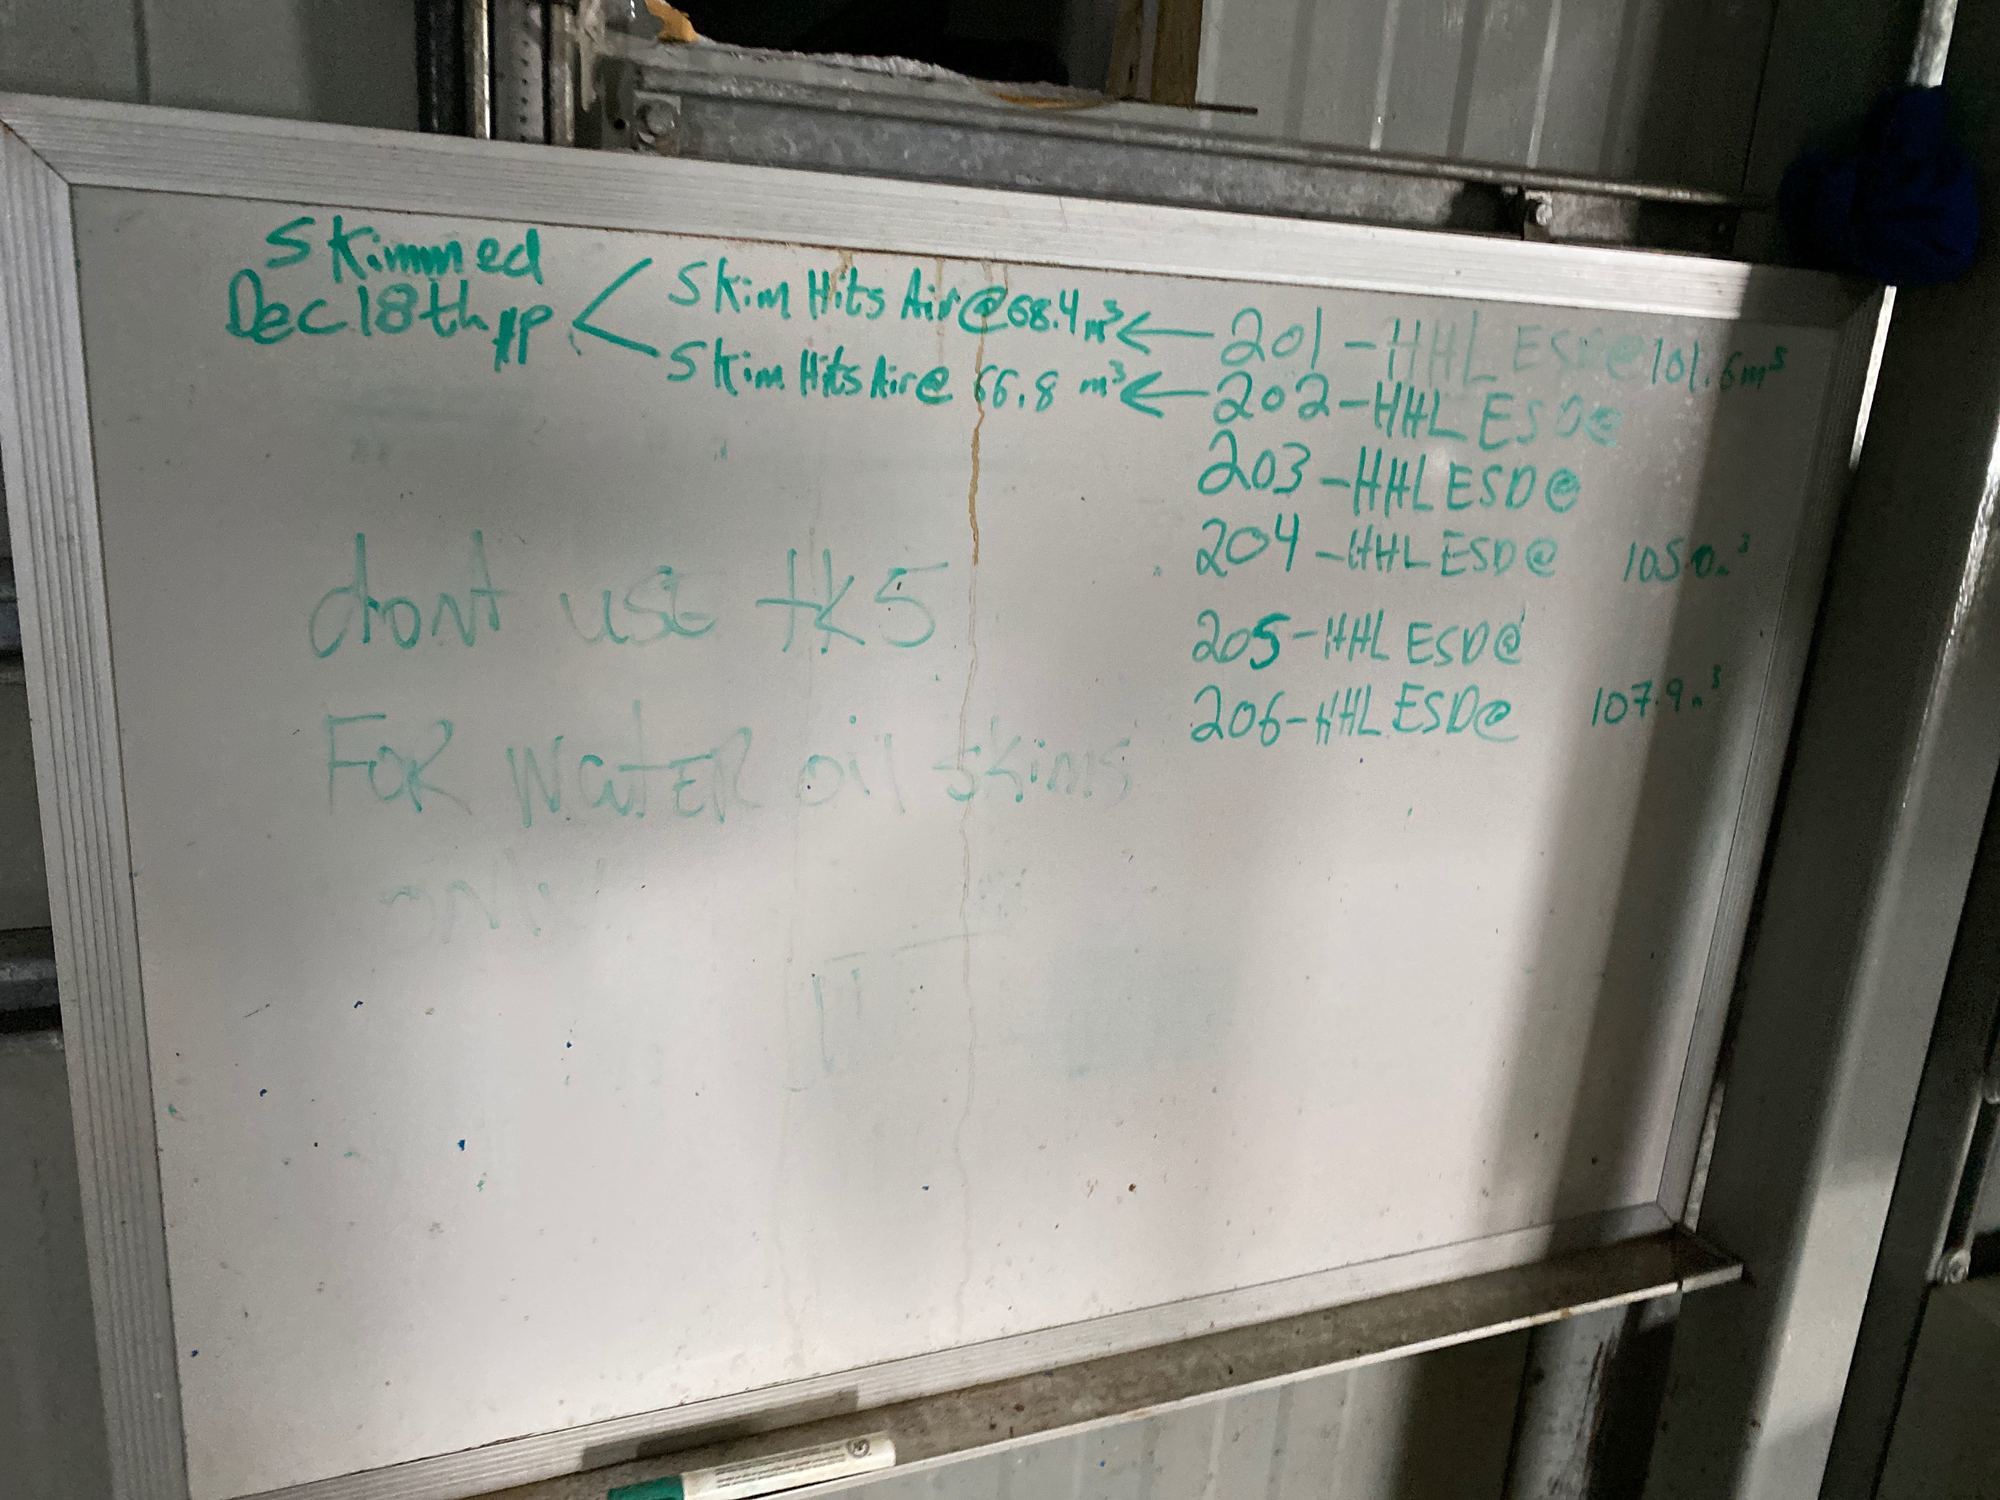 Skimmed
Dec 18th
Skim Hits Air @ 68.4 m³ ← 201 - HHL ESD @ 101.6m³
Skim Hits Air @ 66.8 m³ ← 202 - HHL ESD @
203 - HHL ESD @
204 - HHL ESD @
205 - HHL ESD @
206 - HHL ESD @ 107.9
dont use tk5
FOR WatER oil skims
only